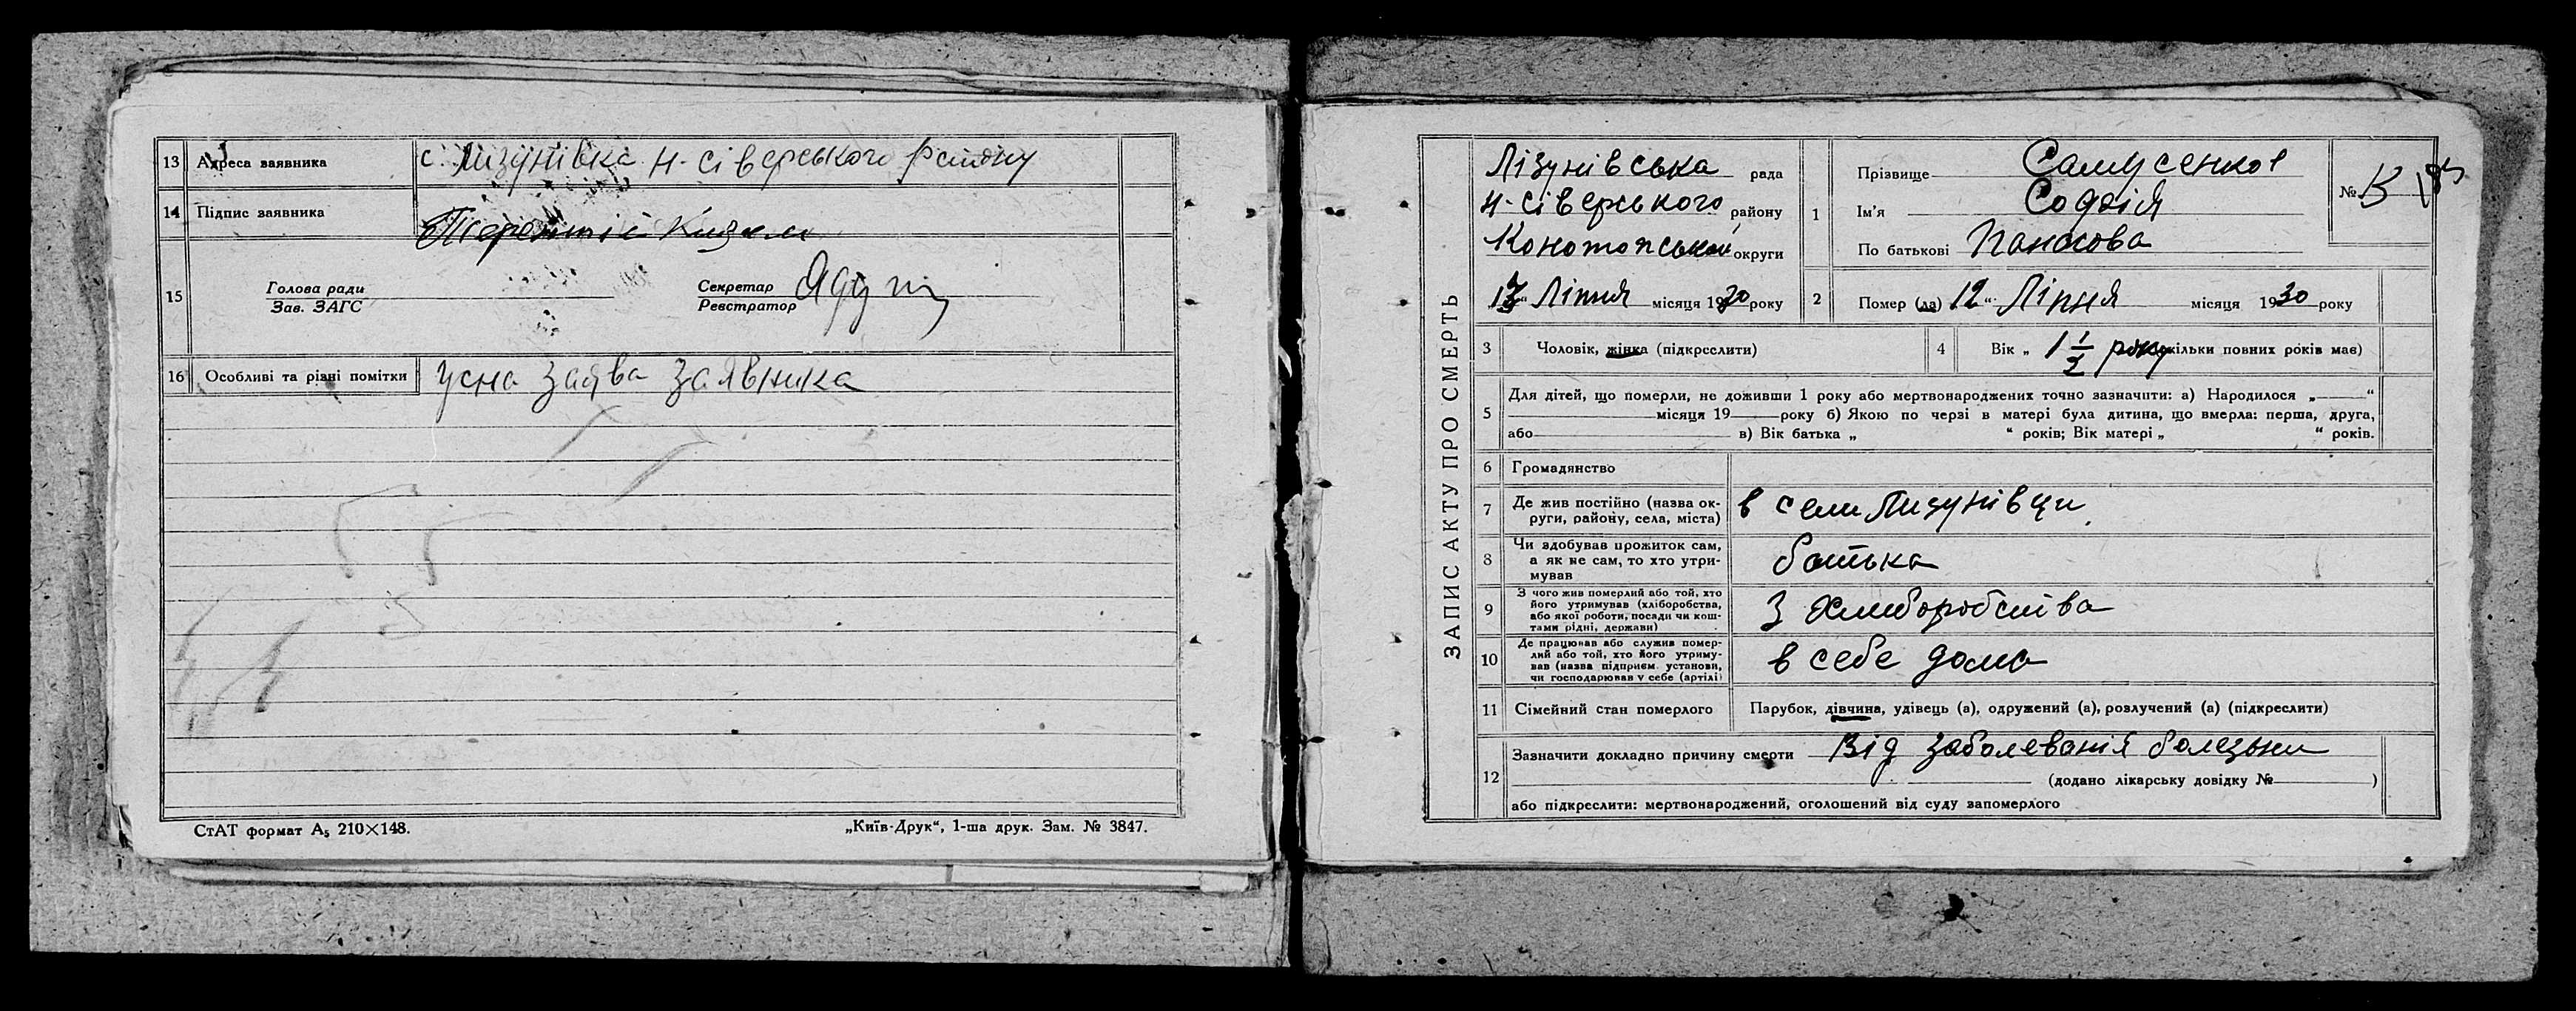 13 Адреса заявника с. Лизунівка Н-сіверського району
14 Підпис заявника
15 Голова ради
Зав. ЗАГС
Секретар
Реєстратор
16 Особливі та різні помітки Усна заява заявника
СтАТ формат А₅ 210×148.
„Київ-Друк“, 1-ша друк. Зам. № 3847.
ЗАПИС АКТУ ПРО СМЕРТЬ
Лізунівська рада
Н-сіверського району
Конотопської округи
„13“ Ліпня місяця 1930 року
1 Прізвище Самусенкоі
Ім'я Софія
По батькові Панасова
№
2 Помер (ла) 12 “ Ліпня місяця 1930 року
3 Чоловік, жінка (підкреслити)
4 Вік „ 1 1/2 року (скільки повних років має)
5 Для дітей, що померли, не доживши 1 року або мертвонароджених точно зазначити: а) Народилося „ “
місяця 19 року б) Якою по черзі в матері була дитина, що вмерла: перша, друга,
або в) Вік батька „ “ років; Вік матері „ “ років.
6 Громадянство
7 Де жив постійно (назва ок-
руги, району, села, міста) в сели Лизунівци
8 Чи здобував прожиток сам,
а як не сам, то хто утри-
мував батька
9 З чого жив померлий або той, хто
його утримував (хліборобства,
або якої роботи, посади чи кош-
тами рідні, держави) З хлиборобства
10 Де працював або служив помер-
лий або той, хто його утриму-
вав (назва підприєм. установи,
чи господарював у себе (артілі) в себе дома
11 Сімейний стан померлого Парубок, дівчина, удівець (а), одружений (а), розлучений (а) (підкреслити)
12 Зазначити докладно причину смерти Від заболеванія болезьни
(додано лікарську довідку № )
або підкреслити: мертвонароджений, оголошений від суду запомерлого